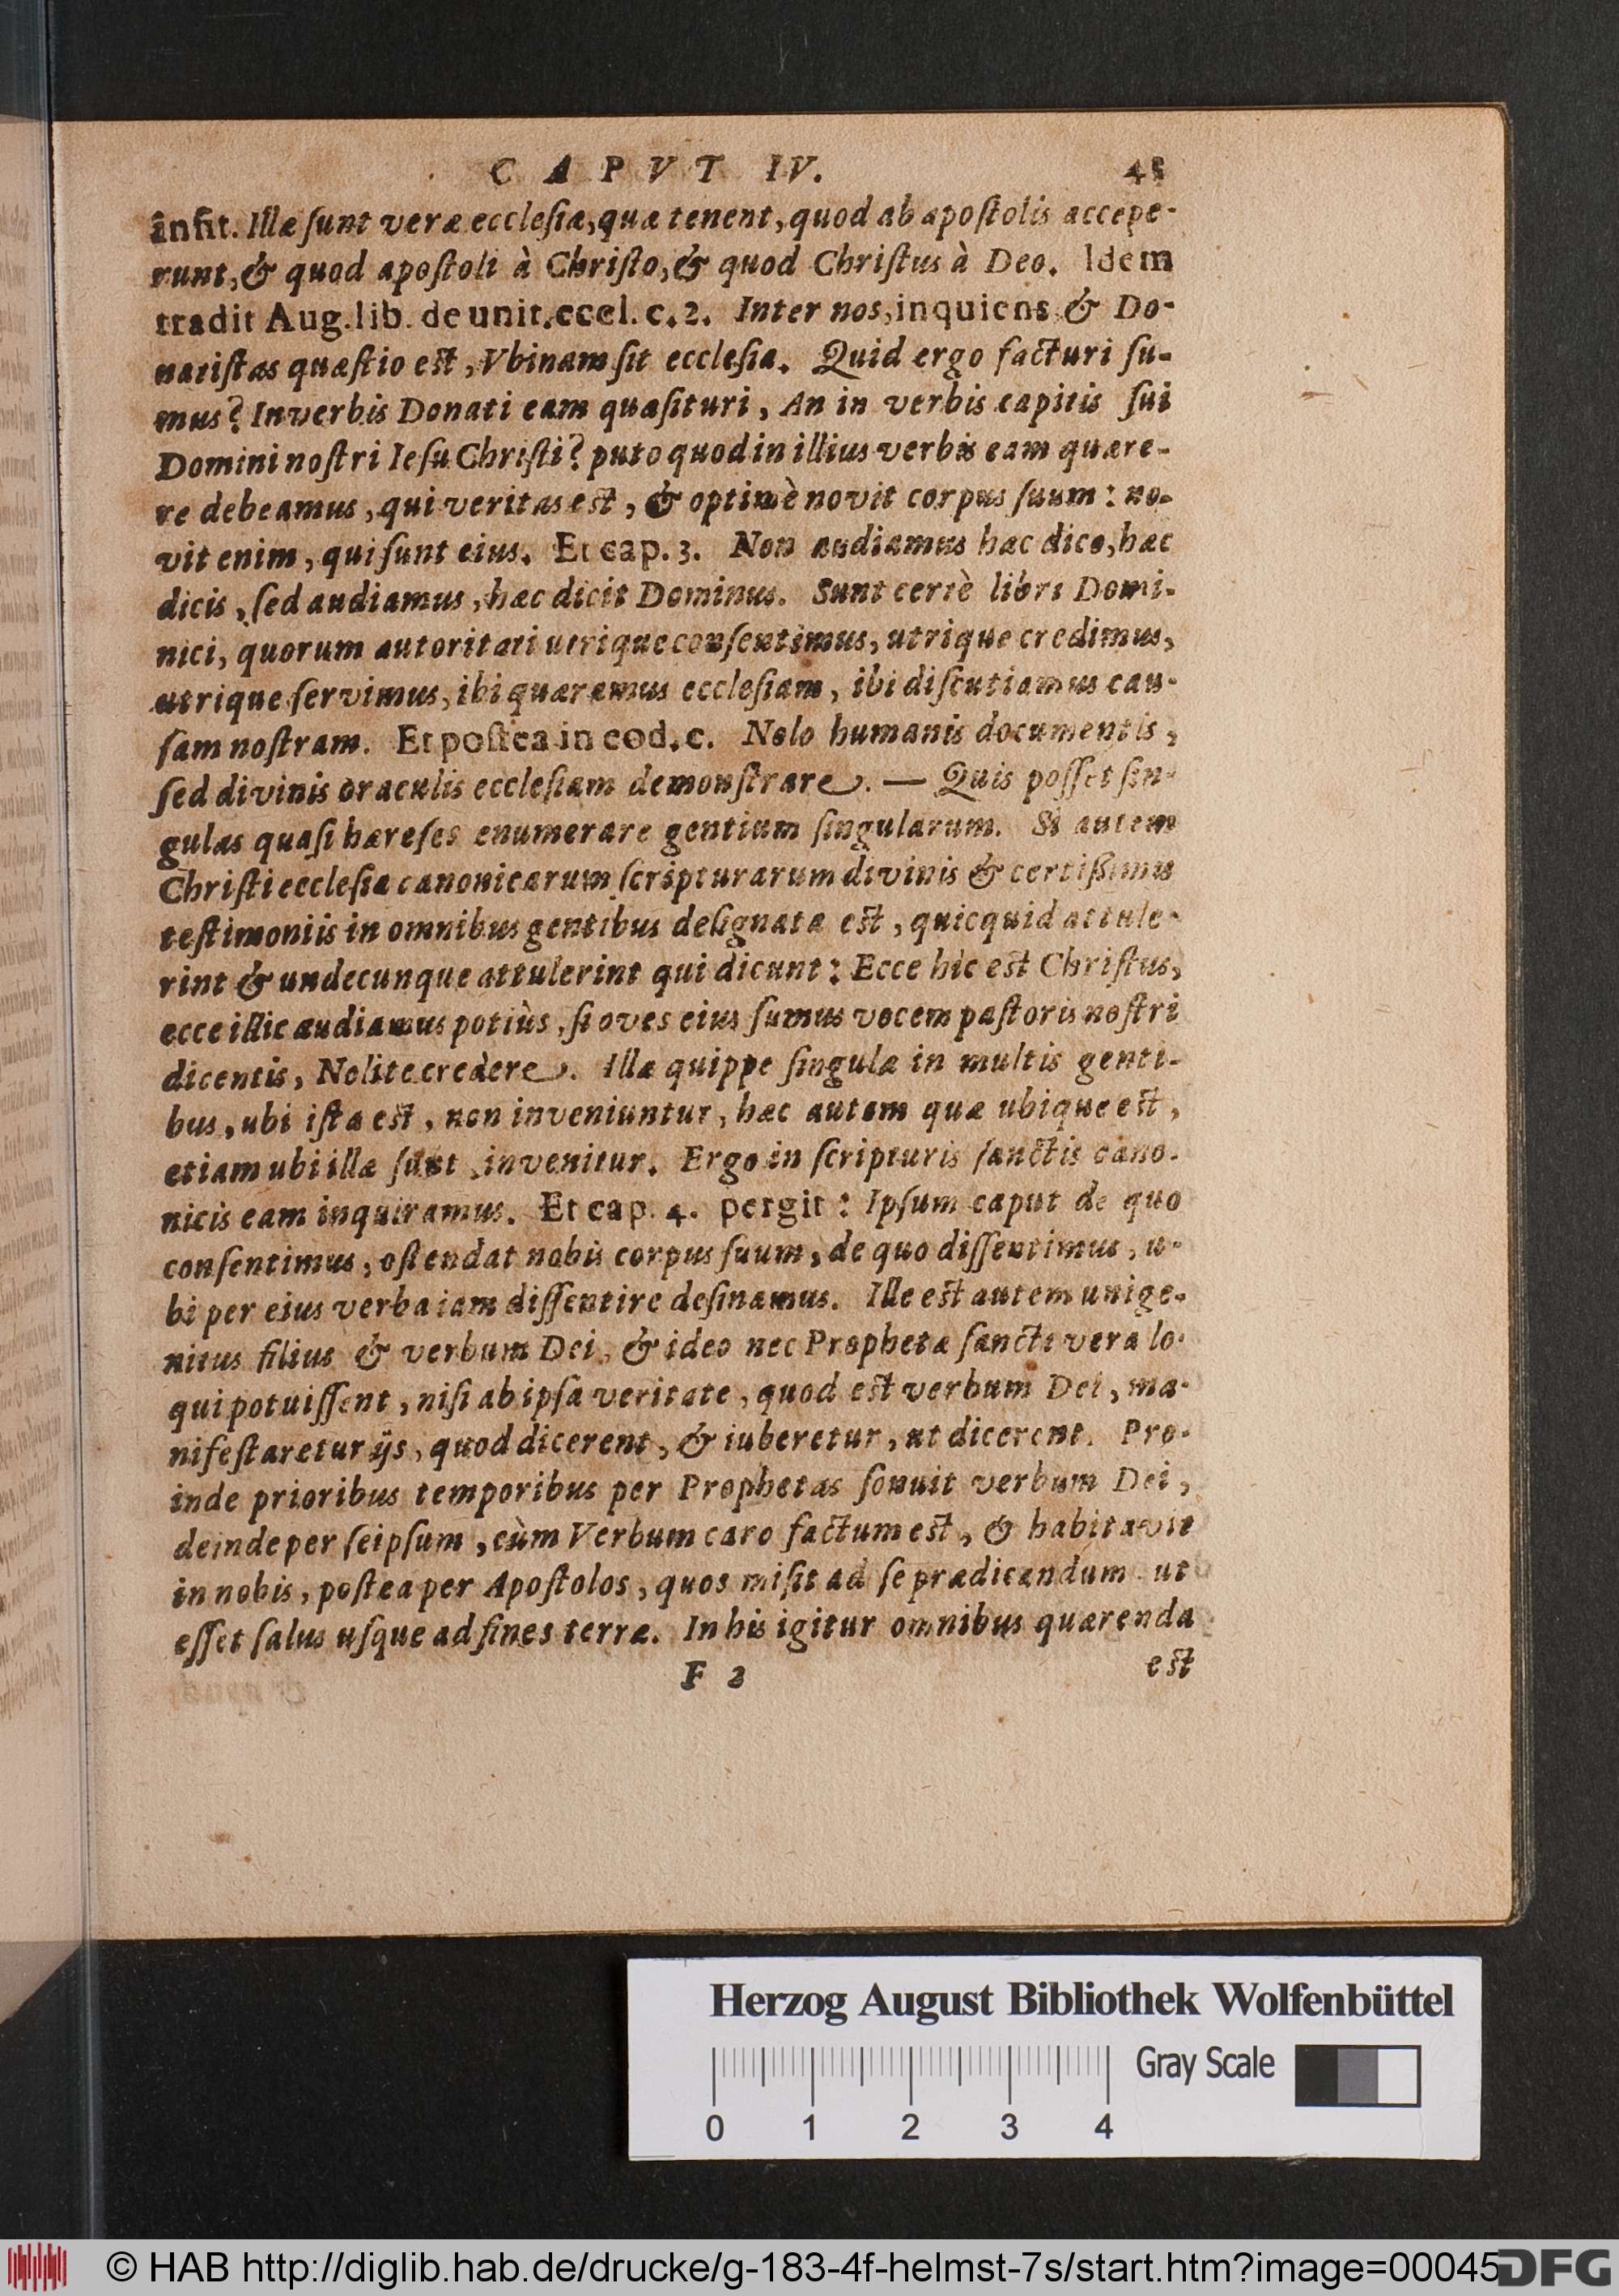 CAPVT IV. 45
infit. Illæ ſunt veræ eccleſiæ, quæ tenent, quod ab apoſtolis accepe-
runt, & quod apoſtoli à Chriſto, & quod Chriſtus à Deo. Idem
tradit Aug. lib. de unit. eccl. c. 2. Inter nos, inquiens & Do-
natiſtas quæſtio eſt, Vbinam ſit eccleſia. Quid ergo facturi ſu-
mus? In verbis Donati eam quæſituri, An in verbis capitis ſui
Domini noſtri Ieſu Chriſti? puto quod in illius verbis eam quære-
re debeamus, qui veritas eſt, & optimè novit corpus ſuum: no-
vit enim, qui ſunt eius. Et cap. 3. Non audiamus hæc dico, hæc
dicis, ſed audiamus, hæc dicit Dominus. Sunt certè libri Domi-
nici, quorum autoritati utrique conſentimus, utrique credimus,
utrique ſervimus, ibi quæramus eccleſiam, ibi diſcutiamus cau-
ſam noſtram. Et poſtea in eod. c. Nolo humanis documentis,
ſed divinis oraculis eccleſiam demonſtrare. — Quis poſſet ſin-
gulas quaſi hæreſes enumerare gentium ſingularum. Si autem
Chriſti eccleſia canonicarum ſcripturarum divinis & certißimis
teſtimoniis in omnibus gentibus deſignata eſt, quicquid attule-
rint & undecunque attulerint qui dicunt: Ecce hic eſt Chriſtus,
ecce illic audiamus potiùs, ſi oves eius ſumus vocem paſtoris noſtri
dicentis, Nolite credere. Illæ quippe ſingulæ in multis genti-
bus, ubi iſta eſt, non inveniuntur, hæc autem quæ ubique eſt,
etiam ubi illæ ſunt, invenitur. Ergo in ſcripturis ſanctis cano-
nicis eam inquiramus. Et cap. 4. pergit: Ipſum caput de quo
conſentimus, oſtendat nobis corpus ſuum, de quo diſſentimus, u-
bi per eius verba iam diſſentire deſinamus. Ille eſt autem unige-
nitus filius & verbum Dei, & ideo nec Prophetæ ſancti vera lo-
qui potuiſſent, niſi ab ipſa veritate, quod eſt verbum Dei, ma-
nifeſtaretur ijs, quod dicerent, & iuberetur, ut dicerent. Pro-
inde prioribus temporibus per Prophetas ſonuit verbum Dei,
deinde per ſeipſum, cùm Verbum caro factum eſt, & habitavit
in nobis, poſtea per Apoſtolos, quos miſit ad ſe prædicandum ut
eſſet ſalus uſque ad fines terræ. In his igitur omnibus quærenda
F 2 eſt
Herzog August Bibliothek Wolfenbüttel
Gray Scale
0 1 2 3 4
© HAB http://diglib.hab.de/drucke/g-183-4f-helmst-7s/start.htm?image=00045
DFG